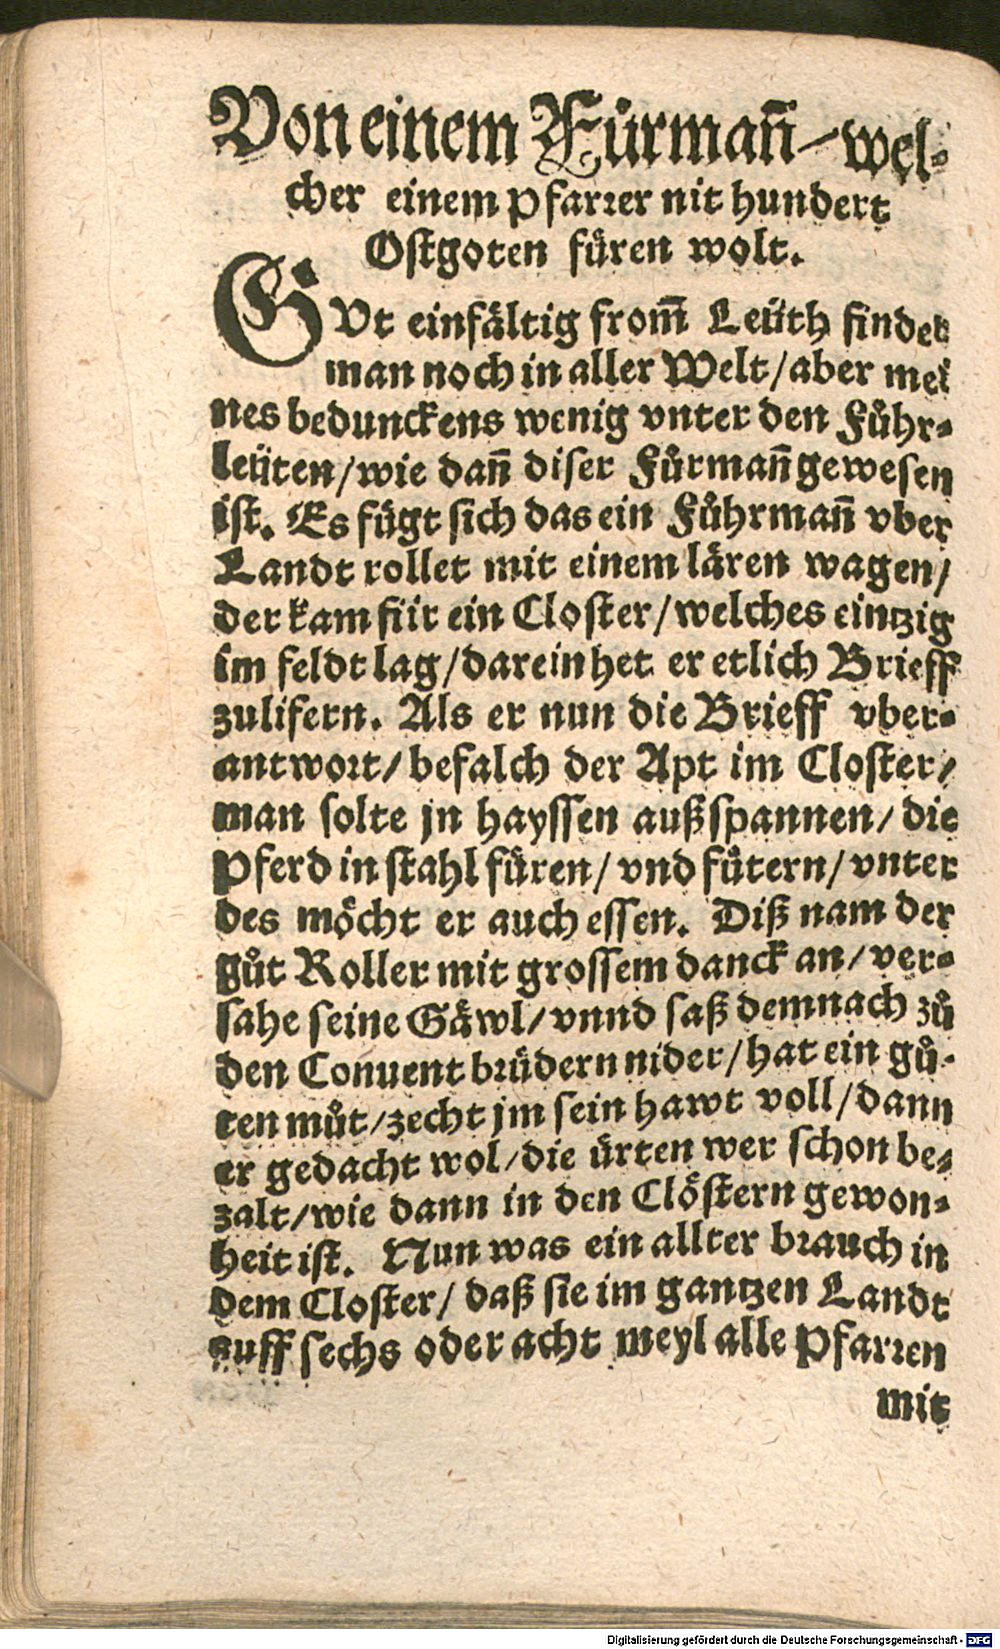 Von einem Fůrmañ / wel⸗
cher einem Pfarrer nit hundert
Ostgoten füren wolt.
GVt einfältig from̃ Leüth findet
man noch in aller Welt / aber mei
nes bedunckens wenig vnter den Fůhr⸗
leüten / wie dañ diser Fůrmañ gewesen
ist. Es fügt sich das ein Fůhrmañ vber
Landt rollet mit einem lären wagen /
der kam für ein Closter / welches eintzig
im feldt lag / darein het er etlich Brieff
zulifern. Als er nun die Brieff vber⸗
antwort / befalch der Apt im Closter /
man solte jn hayssen außspannen / die
Pferd in stahl füren / vnd fůtern / vnter
des möcht er auch essen. Diß nam der
gůt Roller mit grossem danck an / ver⸗
sahe seine Gäwl / vnnd saß demnach zů
den Conuent brüdern nider / hat ein gů⸗
ten můt / zecht jm sein hawt voll / dann
er gedacht wol / die ürten wer schon be⸗
zalt / wie dann in den Clöstern gewon⸗
heit ist. Nun was ein allter brauch in
dem Closter / daß sie im gantzen Landt
auff sechs oder acht meyl alle Pfarren
mit
Digitalisierung gefördert durch die Deutsche Forschungsgemeinschaft - DFG